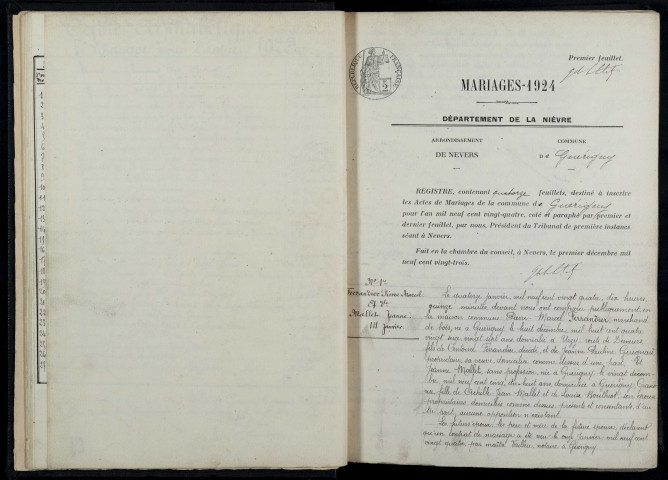 Premier feuillet.
RÉPUBLIQUE FRANÇAISE
MARIAGES-1924
DÉPARTEMENT DE LA NIÈVRE
ARRONDISSEMENT
DE NEVERS
COMMUNE
DE Guérigny
REGISTRE, contenant quatorze feuillets, destiné à inscrire
les Actes de Mariages de la commune de Guérigny
pour l'an mil neuf cent vingt-quatre, coté et paraphé par premier et
dernier feuillet, par nous, Président du Tribunal de première instance
séant à Nevers.
Fait en la chambre du conseil, à Nevers, le premier décembre mil
neuf cent vingt-trois.
N° 1er
Ferrandier Pierre Marcel
et
Mallet Jeanne
14 janvier.
Le quatorze janvier mil neuf cent vingt quatre, dix heures
quinze minutes, devant nous ont comparu publiquement, en
la maison commune Pierre Marcel Ferrandier, marchand
de bois, né à Guérigny le huit décembre mil huit cent quatre
vingt domicilié à Urzy, route de
fils de Ferrandier décédé, et de Jeanne Pauline
propriétaire, sa veuve domiciliée d'une part. Et
Jeanne Mallet, sans profession, née à Guérigny le vingt décem
bre mil neuf cent cinq, dix-huit ans domiciliée à Guérigny,
fille de Jean Mallet et de Louise son épouse
propriétaires domiciliés comme dessus, présents et consentants d'au
tre part; aucune opposition n'existant.
Les futurs époux, les père et mère de la future épouse, déclarent
qu'un contrat de mariage a été reçu le onze janvier mil neuf cent
vingt quatre par maître notaire à Guérigny